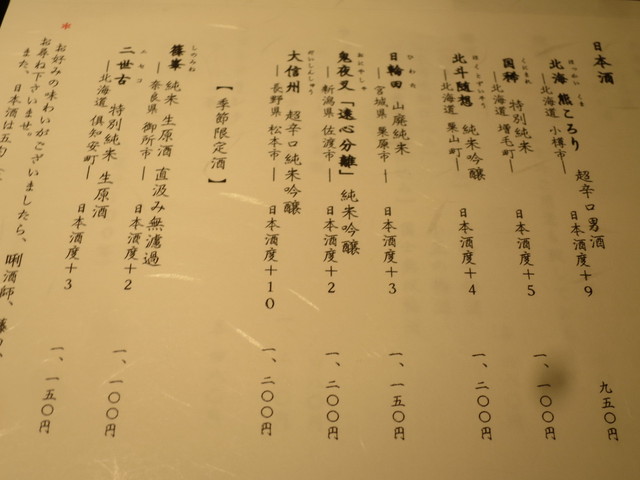 日本酒
北海 熊ころり 超辛口男酒
ほっかい くま
―北海道 小樽市― 日本酒度+9 九五〇円
国稀 特別純米
くにまれ
―北海道 増毛町― 日本酒度+5 一、一〇〇円
北斗随想 純米吟醸
ほくとずいそう
―北海道 栗山町― 日本酒度+4 一、二〇〇円
日輪田 山廃純米
ひわた
―宮城県 栗原市― 日本酒度+3 一、一五〇円
鬼夜叉「遠心分離」 純米吟醸
おにやしゃ
―新潟県 佐渡市― 日本酒度+2 一、二〇〇円
大信州 超辛口純米吟醸
だいしんしゅう
―長野県 松本市― 日本酒度+10 一、二〇〇円
【季節限定酒】
篠峯 純米 生原酒 直汲み無濾過
しのみね
―奈良県 御所市― 日本酒度+2 一、一〇〇円
二世古 特別純米 生原酒
ニセコ
―北海道 倶知安町― 日本酒度+3 一、一五〇円
＊
お好みの味わいがございましたら、唎酒師、
お尋ね下さいませ。
また、日本酒は五勺